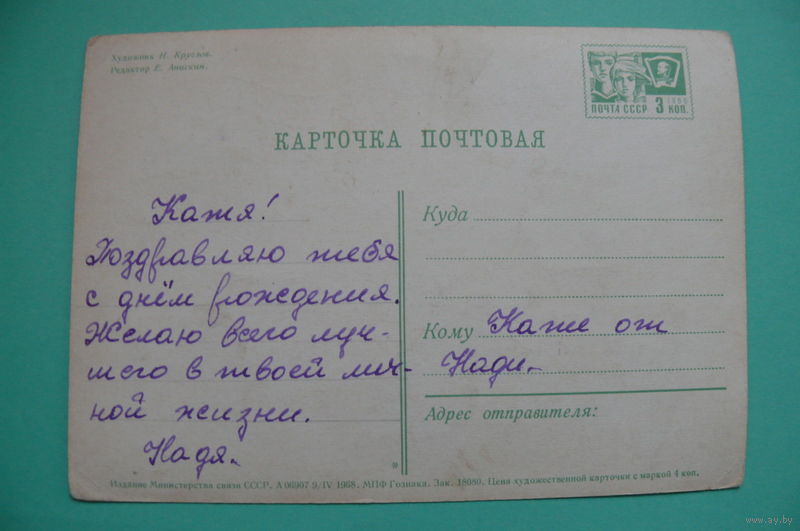 Художник Н. Круглов.
Редактор Е. Анискин.
ПОЧТА СССР 3 КОП.
1966
КАРТОЧКА ПОЧТОВАЯ
Катя!
Поздравляю тебя
с днём рождения.
Желаю всего луч-
шего в твоей лич-
ной жизни.
Надя.
Куда
Кому Кате от
Нади.
Адрес отправителя:
Издание Министерства связи СССР. А 00907 9/IV 1968. МПФ Гознака. Зак. 18080. Цена художественной карточки с маркой 4 коп.
www.ay.by